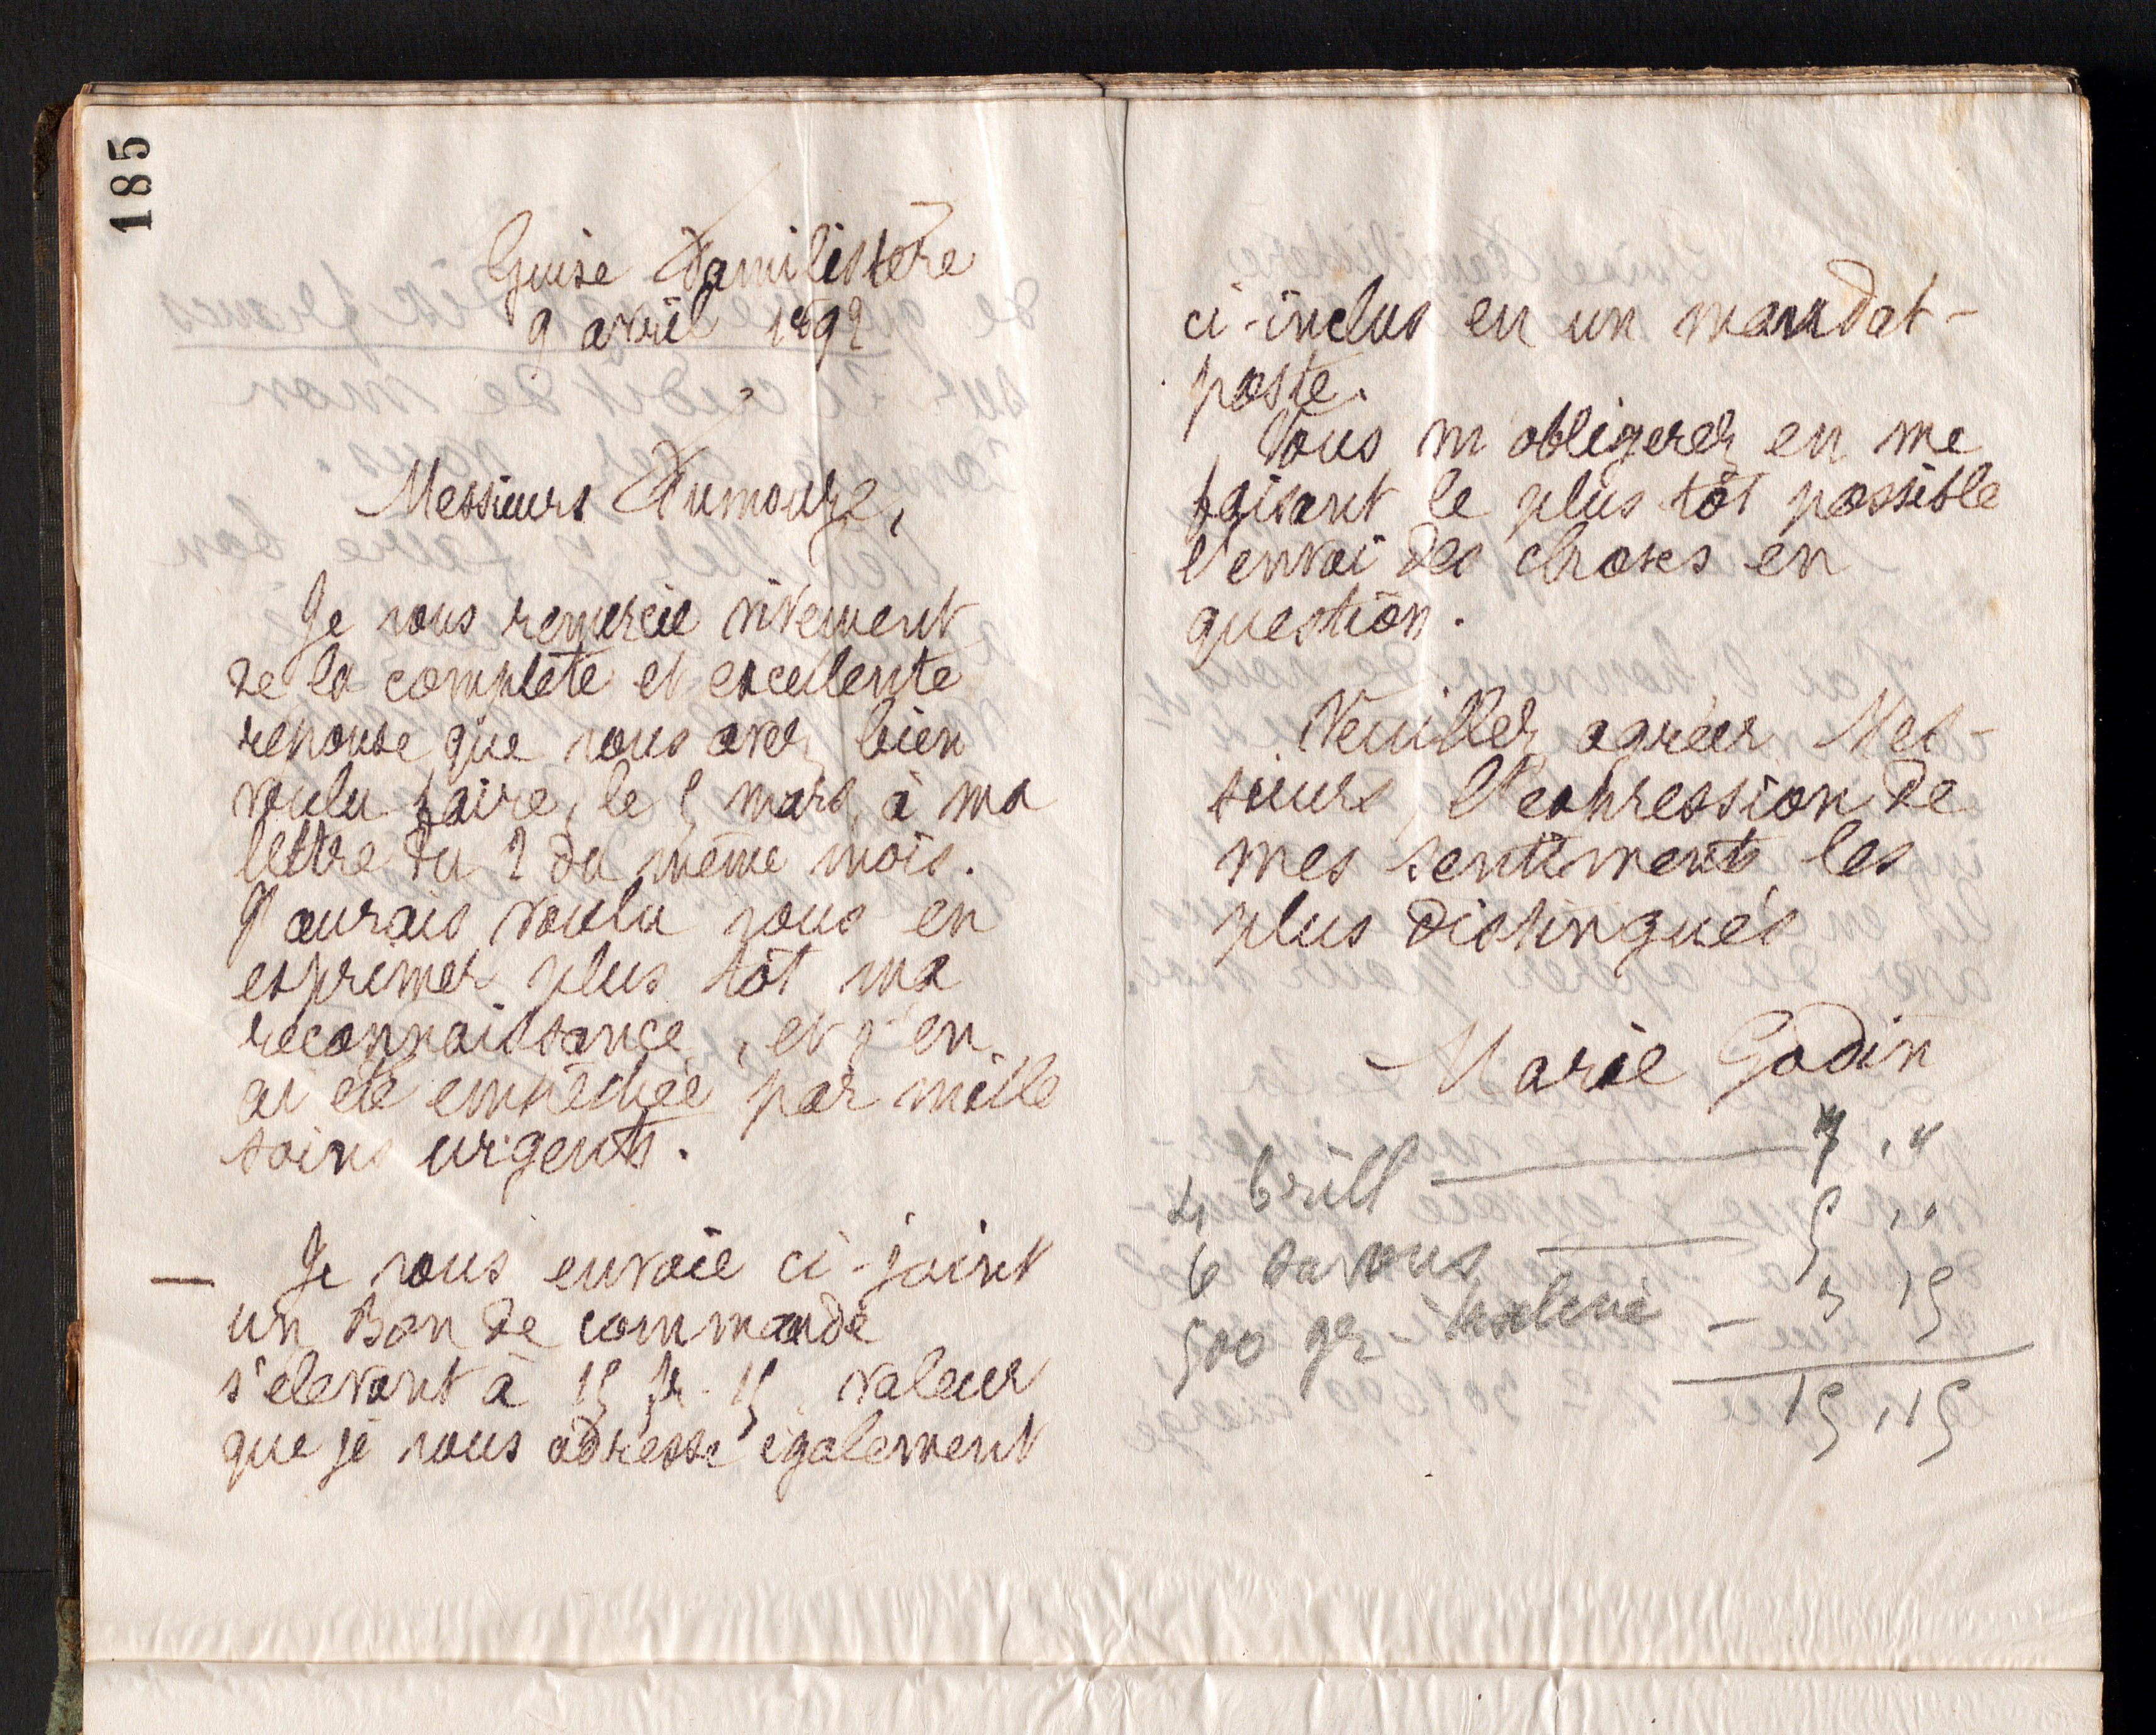 185
Guise Familistère
9 avril 1892
Messieurs Dumouze,
Je vous remercie vivement
de la complète et excellente
réponse que vous avez bien
voulu faire, le 5 mars, à ma
lettre du 2 du même mois.
J'aurais voulu vous en
exprimer plus tôt ma
reconnaissance, et j'en
ai été empêchée par mille
soins urgents.
— Je vous envoie ci-joint
un Bon de commande
s'élevant à 15 fr. 15, valeur
que je vous adresse également
ci-inclus en un mandat-
poste.
Vous m'obligerez en me
faisant le plus tôt possible
l'envoi des choses en
question.
Veuillez agréer, Mes-
sieurs, l'expression de
mes sentiments les
plus distingués
Marie Godin
4 brill — 7 , "
6 savons — 5 , "
500 gr - — 3 15
15,15